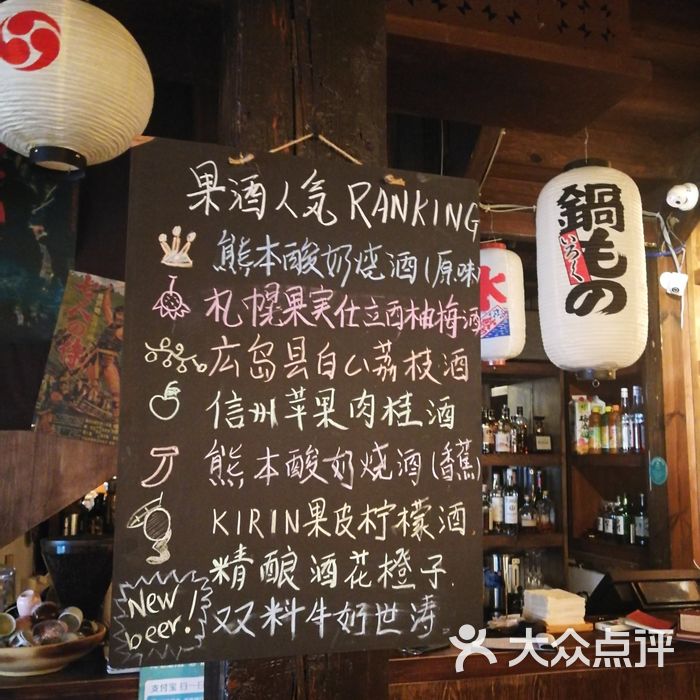 果酒人气 RANKING
熊本酸奶烧酒(原味)
札幌果実仕立西柚梅酒
広岛县白い荔枝酒
信州苹果肉桂酒
熊本酸奶烧酒(香蕉)
KIRIN果皮柠檬酒
精酿酒花橙子.
New beer!
双料牛奶世涛
鍋もの
いろく
氷
支付宝 扫一扫
大众点评